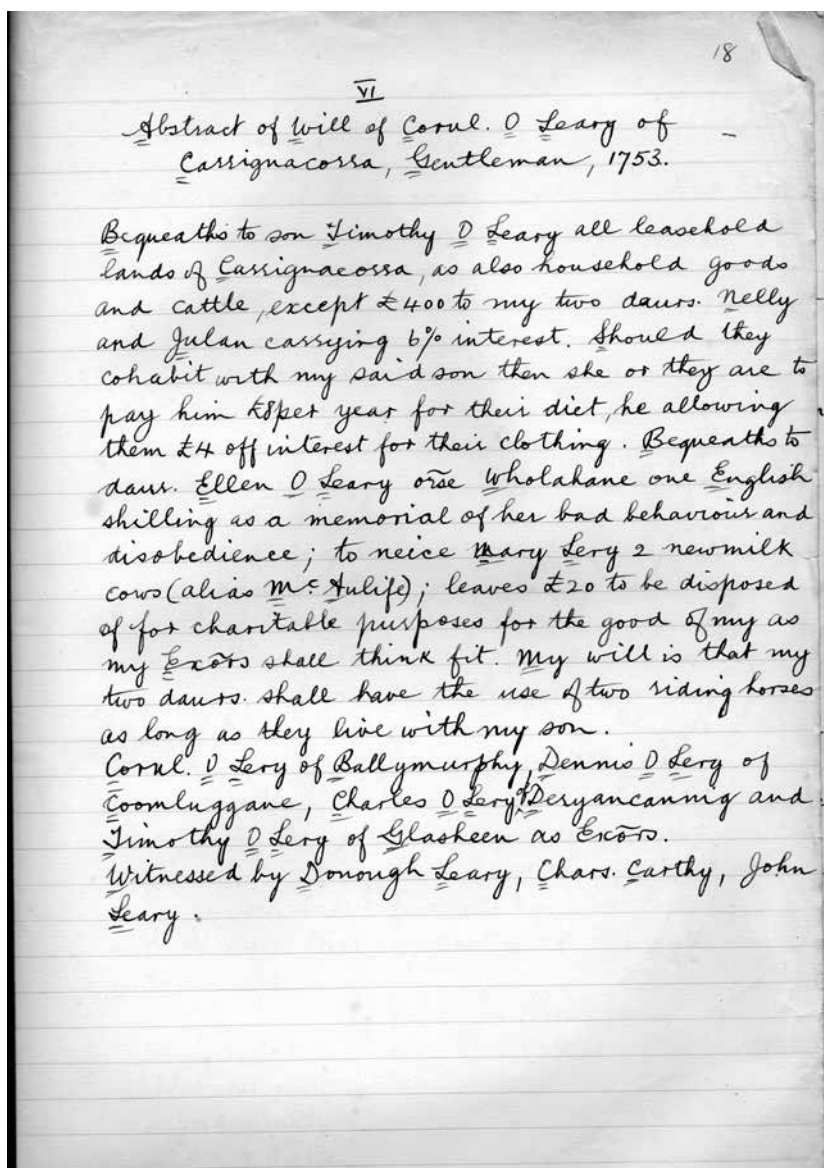 18
VI
Abstract of Will of Cornl. O Leary of
Carrignacorra, Gentleman, 1753.
Bequeaths to son Timothy O Leary all leasehold
lands of Carrignacorra, as also household goods
and cattle, except £400 to my two daurs. Nelly
and Julan carrying 6% interest. Should they
cohabit with my said son then she or they are to
pay him £8 per year for their diet, he allowing
them £4 off interest for their clothing. Bequeaths to
daur. Ellen O Leary orse Wholahane one English
shilling as a memorial of her bad behaviour and
disobedience; to neice Mary Lery 2 new milk
cows (alias Mc Aulife); leaves £20 to be disposed
of for charitable purposes for the good of my as
my Exors shall think fit. My will is that my
two daurs. shall have the use of two riding horses
as long as they live with my son.
Cornl. O Lery of Ballymurphy, Dennis O Lery of
Coomluggane, Charles O Lery of Deryancannig and
Timothy O Lery of Glasheen as Exors.
Witnessed by Donough Leary, Chars. Carthy, John
Leary.